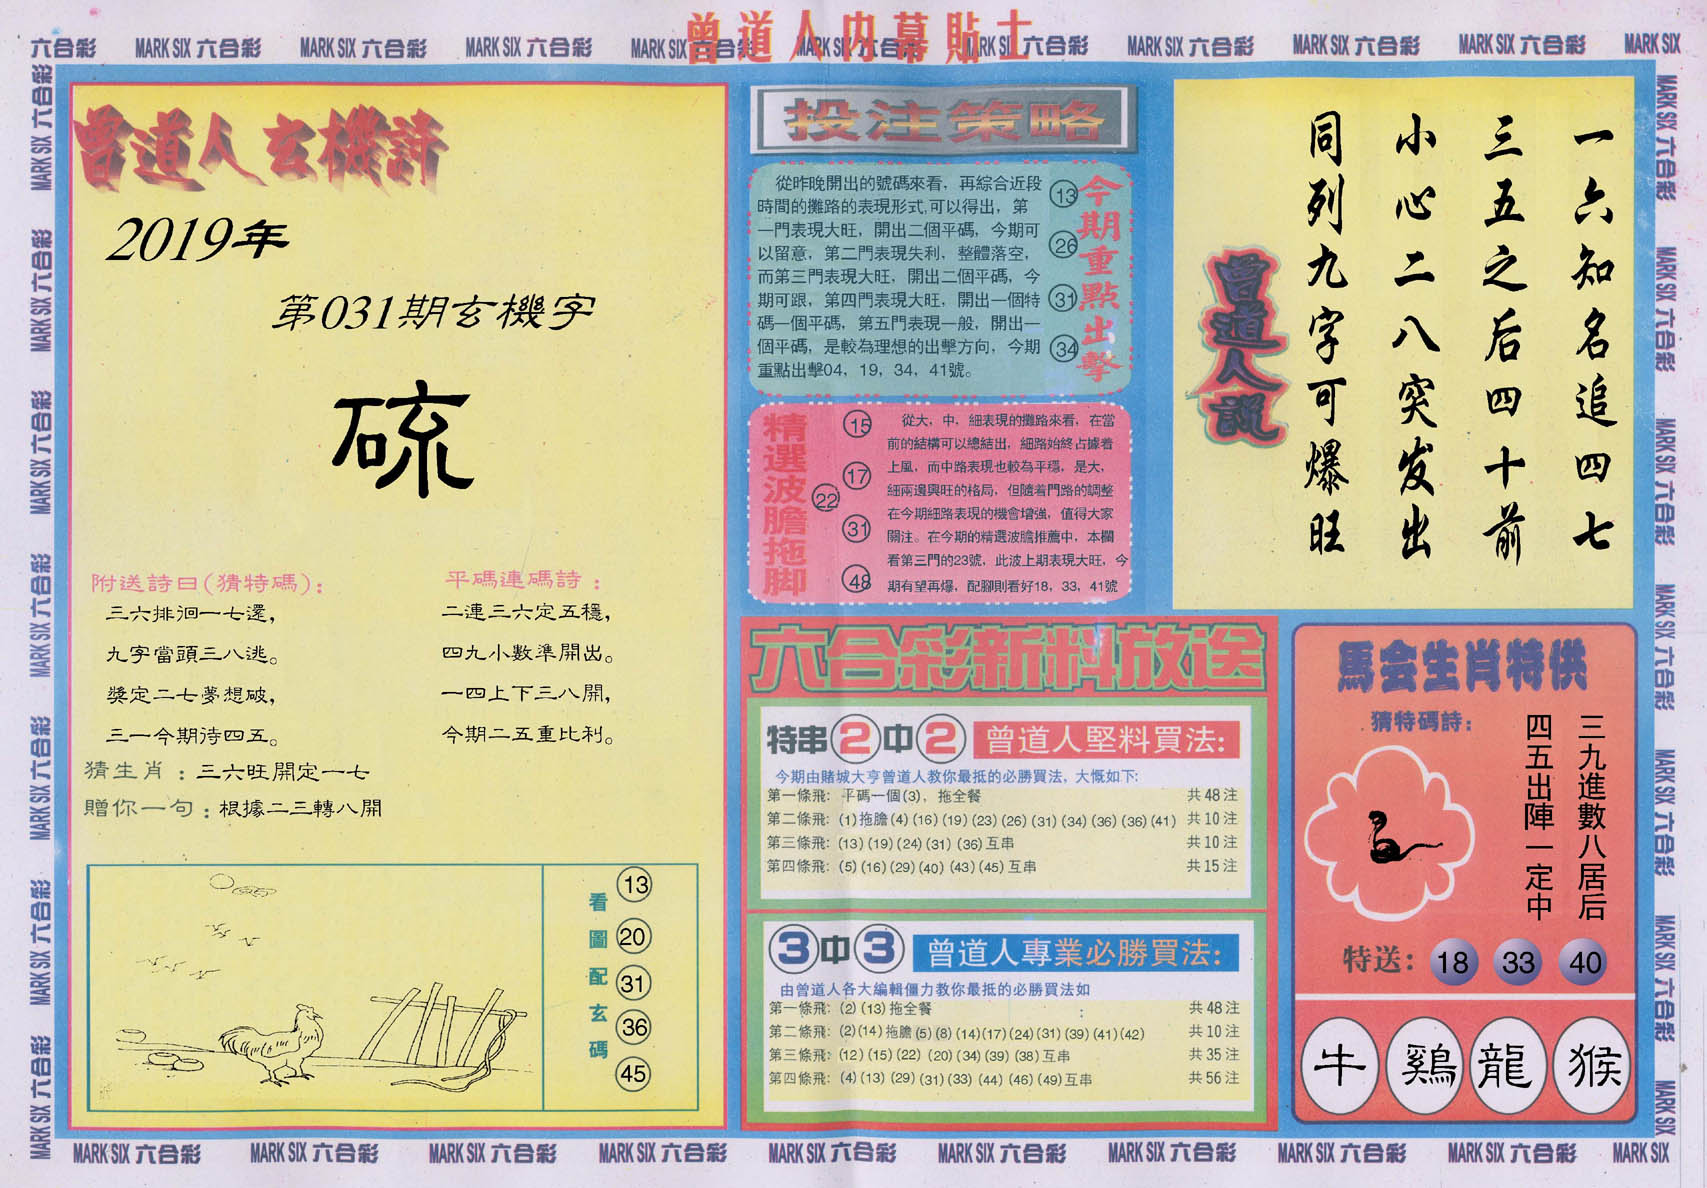 曾道人内幕貼士
六合彩 MARK SIX 六合彩 MARK SIX 六合彩 MARK SIX 六合彩 MARK SIX 六合彩 MARK SIX 六合彩 MARK SIX 六合彩 MARK SIX 六合彩 MARK SIX 六合彩 MARK SIX 六合彩 MARK SIX
曾道人玄機詩
2019年
第031期玄機字
硫
附送詩曰(猜特碼):
三六排徊一七還,
九字當頭三八逃。
獎定二七夢想破,
三一今期待四五。
平碼連碼詩:
二連三六定五穩,
四九小數準開出。
一四上下三八開,
今期二五重比利。
猜生肖:三六旺開定一七
贈你一句:根據二三轉八開
看圖配玄碼
13
20
31
36
45
投注策略
從昨晚開出的號碼來看，再綜合近段
時間的攤路的表現形式,可以得出，第
一門表現大旺，開出二個平碼，今期可
以留意，第二門表現失利，整體落空，
而第三門表現大旺，開出二個平碼，今
期可跟，第四門表現大旺，開出一個特
碼一個平碼，第五門表現一般，開出一
個平碼，是較為理想的出擊方向，今期
重點出擊04，19，34，41號。
13
26
31
34
今期重點出擊
精選波膽拖脚
15
17
22
31
48
從大，中，細表現的攤路來看，在當
前的結構可以總結出，細路始終占據着
上風，而中路表現也較為平穩，是大，
細兩邊興旺的格局，但隨着門路的調整
在今期細路表現的機會增強，值得大家
關注。在今期的精選波膽推薦中，本欄
看第三門的23號，此波上期表現大旺，今
期有望再爆，配腳則看好18，33，41號
一六知名追四七
三五之后四十前
小心二八突发出
同列九字可爆旺
曾道人說
六合彩新料放送
特串2中2 曾道人堅料買法:
今期由賭城大亨曾道人教你最抵的必勝買法，大慨如下:
第一條飛: 平碼一個(3)，拖全餐 共48注
第二條飛: (1)拖膽(4)(16)(19)(23)(26)(31)(34)(36)(36)(41) 共10注
第三條飛: (13)(19)(24)(31)(36)互串 共10注
第四條飛: (5)(16)(29)(40)(43)(45)互串 共15注
3中3 曾道人專業必勝買法:
由曾道人各大編輯僵力教你最抵的必勝買法如
:
第一條飛: (2)(13)拖全餐 共48注
第二條飛: (2)(14)拖膽(5)(8)(14)(17)(24)(31)(39)(41)(42) 共10注
第三條飛: (12)(15)(22)(20)(34)(39)(38)互串 共35注
第四條飛: (4)(13)(29)(31)(33)(44)(46)(49)互串 共56注
馬会生肖特供
猜特碼詩:
三九進數八居后
四五出陣一定中
特送: 18 33 40
牛 鷄 龍 猴
MARK SIX 六合彩 MARK SIX 六合彩 MARK SIX 六合彩 MARK SIX 六合彩 MARK SIX 六合彩 MARK SIX 六合彩 MARK SIX 六合彩 MARK SIX 六合彩 MARK SIX 六合彩 MARK SIX